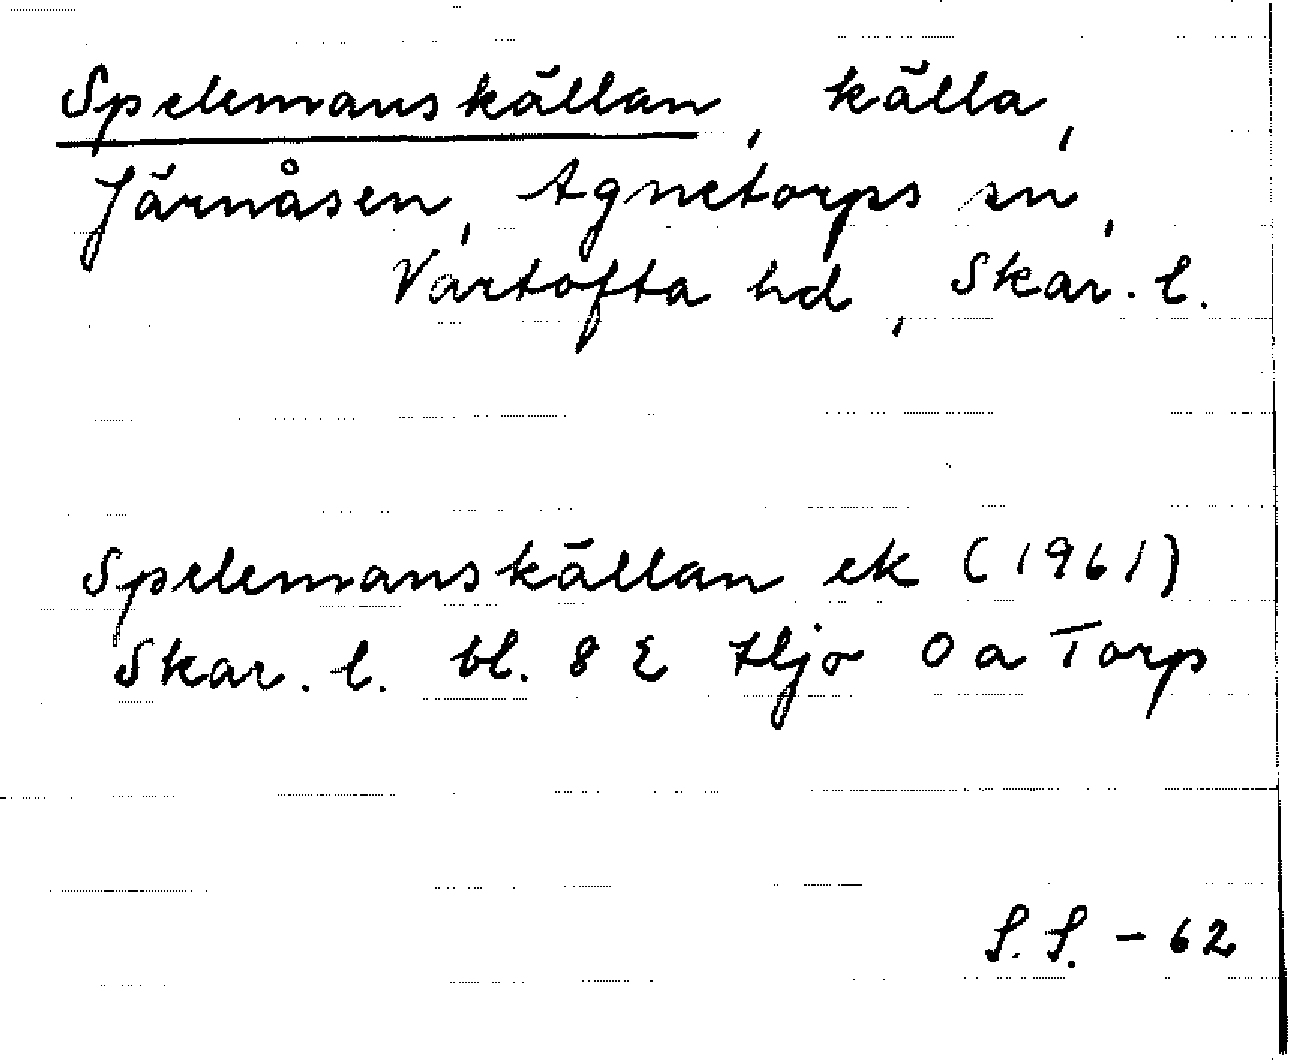 Spelemanskällan, källa,
Järnåsen, Agnetorps sn,
Vartofta hd, Skar. l.
Spelemanskällan ek (1961)
Skar. l. bl. 8 E Hjo O a Torp
S. S. - 62